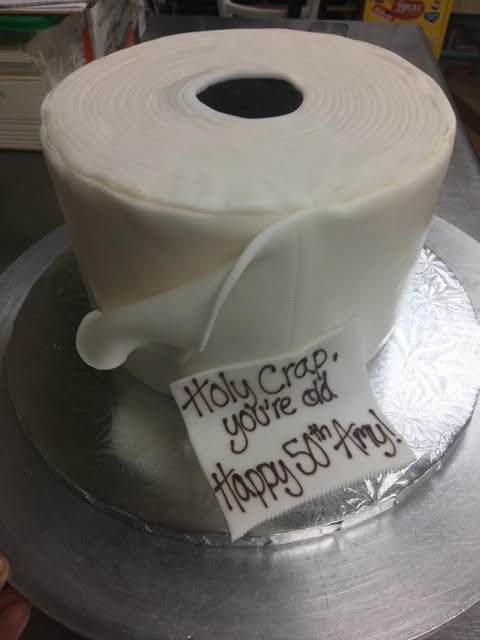 Holy Crap,
you're old
Happy 50th Amy!